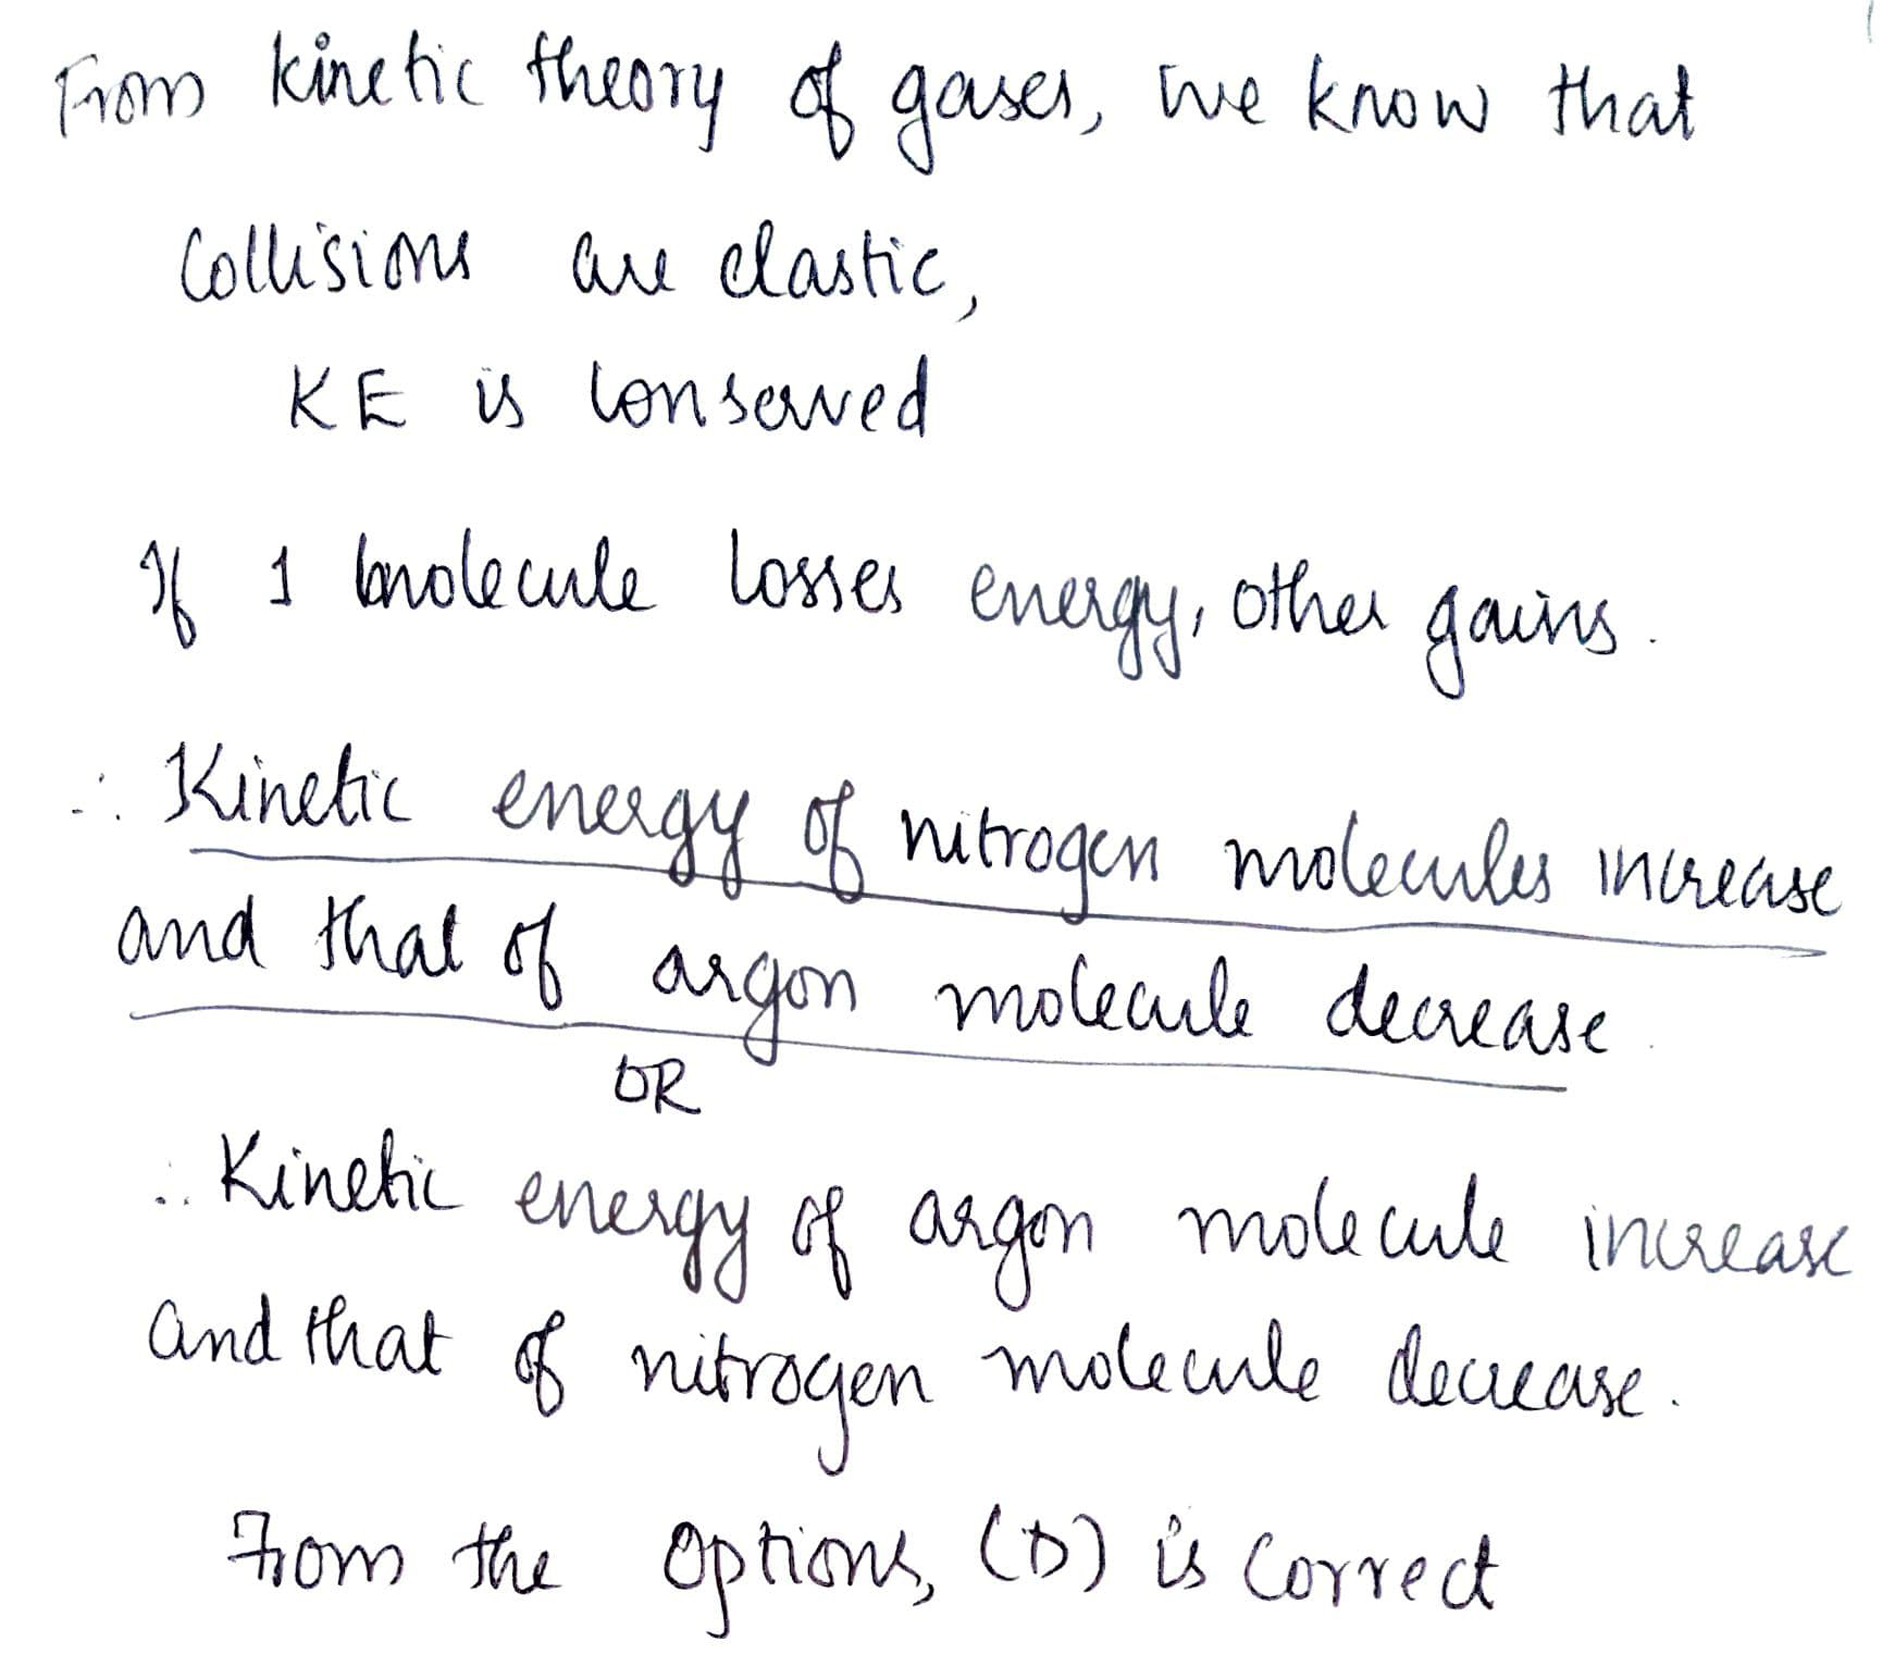 From kinetic theory of gases, we know that
Collisions are elastic,
KE is conserved
If 1 molecule losses energy, other gains.
∴ Kinetic energy of nitrogen molecules increase
and that of argon molecule decrease.
OR
∴ Kinetic energy of argon molecule increase
and that of nitrogen molecule decrease.
From the options, (D) is correct